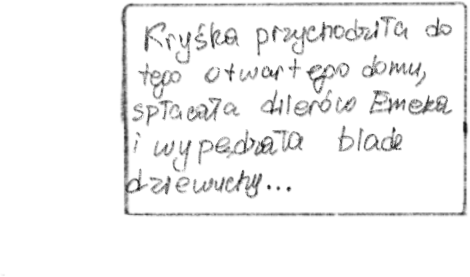 Kryśka przychodziła do
tego otwartego domu,
spłacała dilerów Emeka
i wypędzała blade
dziewuchy...